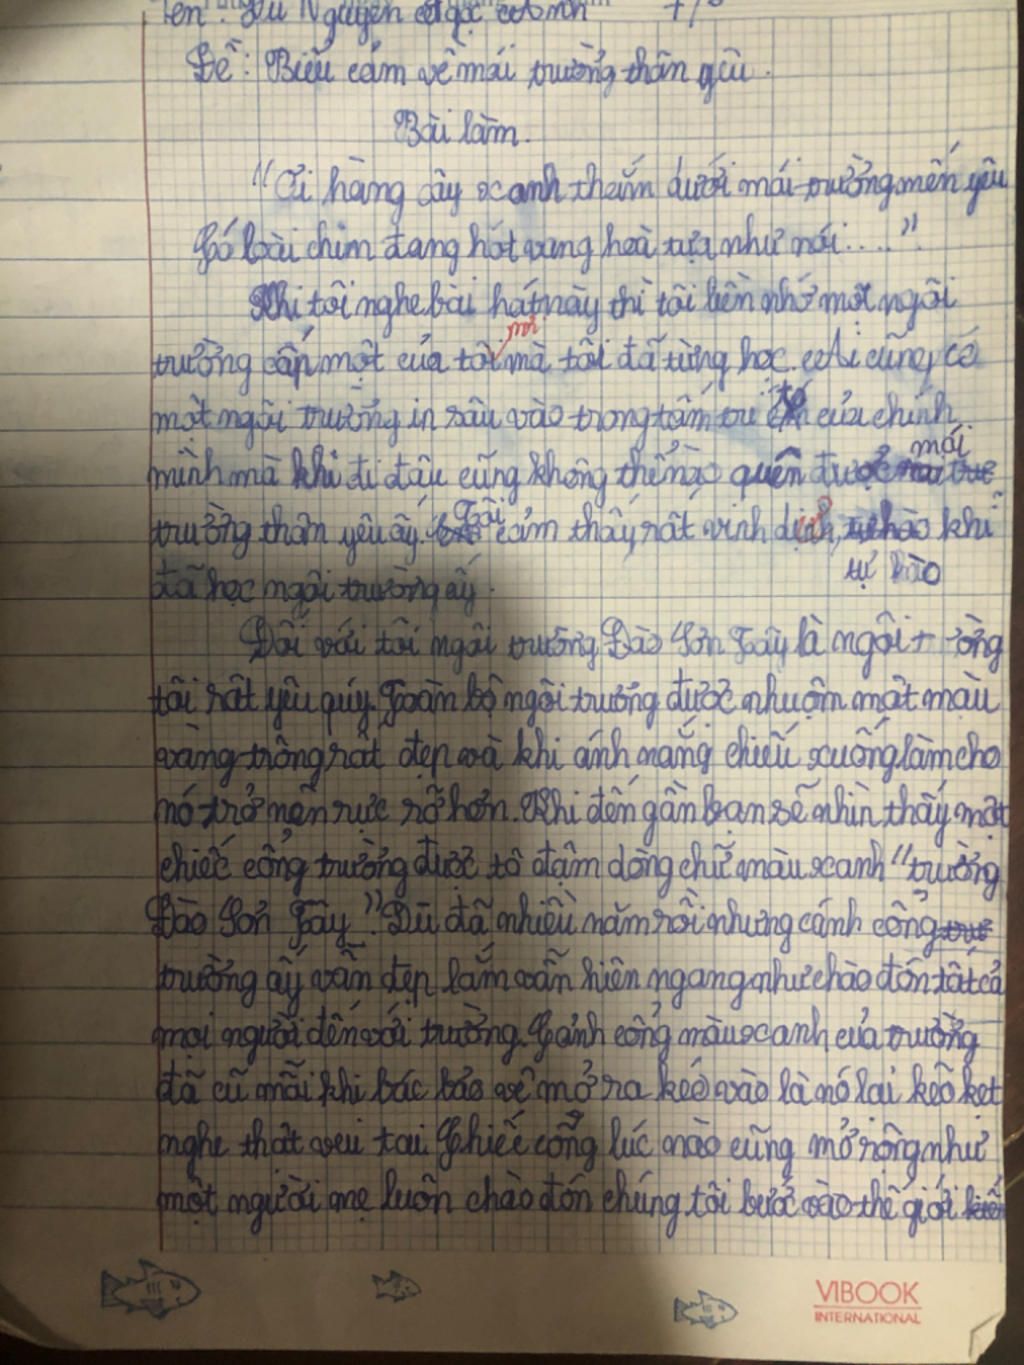 Tên: Nguyễn Ngọc Anh 7/
Đề: Biểu cảm về mái trường thân yêu.
Bài làm.
"Ơi hàng cây xanh thắm dưới mái trường mến yêu
Có loài chim đang hót vang hoà tựa như nói...."
Khi tôi nghe bài hát này thì tôi liền nhớ một ngôi
trường cấp một của tôi mà tôi đã từng học. Ai cũng có
một ngôi trường in sâu vào trong tâm trí của chính
mình mà khi đi đâu cũng không thể nào quên được mái
trường thân yêu ấy. Tôi cảm thấy rất vinh dự, tự hào khi
đã học ngôi trường ấy.
Đối với tôi ngôi trường Đào Sơn Tây là ngôi trường
tôi rất yêu quý. Toàn bộ ngôi trường được nhuộm một màu
vàng trông rất đẹp và khi ánh nắng chiếu xuống làm cho
nó trở nên rực rỡ hơn. Khi đến gần bạn sẽ nhìn thấy một
chiếc cổng trường được tô đậm dòng chữ màu xanh "trường
Đào Sơn Tây". Dù đã nhiều năm rồi nhưng cánh cổng
trường ấy vẫn đẹp lắm vẫn hiên ngang như chào đón tất cả
mọi người đến với trường. Cánh cổng màu xanh của trường
đã cũ mỗi khi bác bảo vệ mở ra kéo vào là nó lại kẽo kẹt
nghe thật vui tai. Chiếc cổng lúc nào cũng mở rộng như
một người mẹ luôn chào đón chúng tôi bước vào thế giới
VIBOOK
INTERNATIONAL